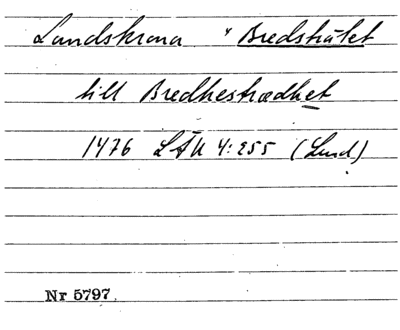 Landskrona * Bredsträtet
till Bredhestrædhet
1476 LÄU 4:255 (Lund)
Nr 5797